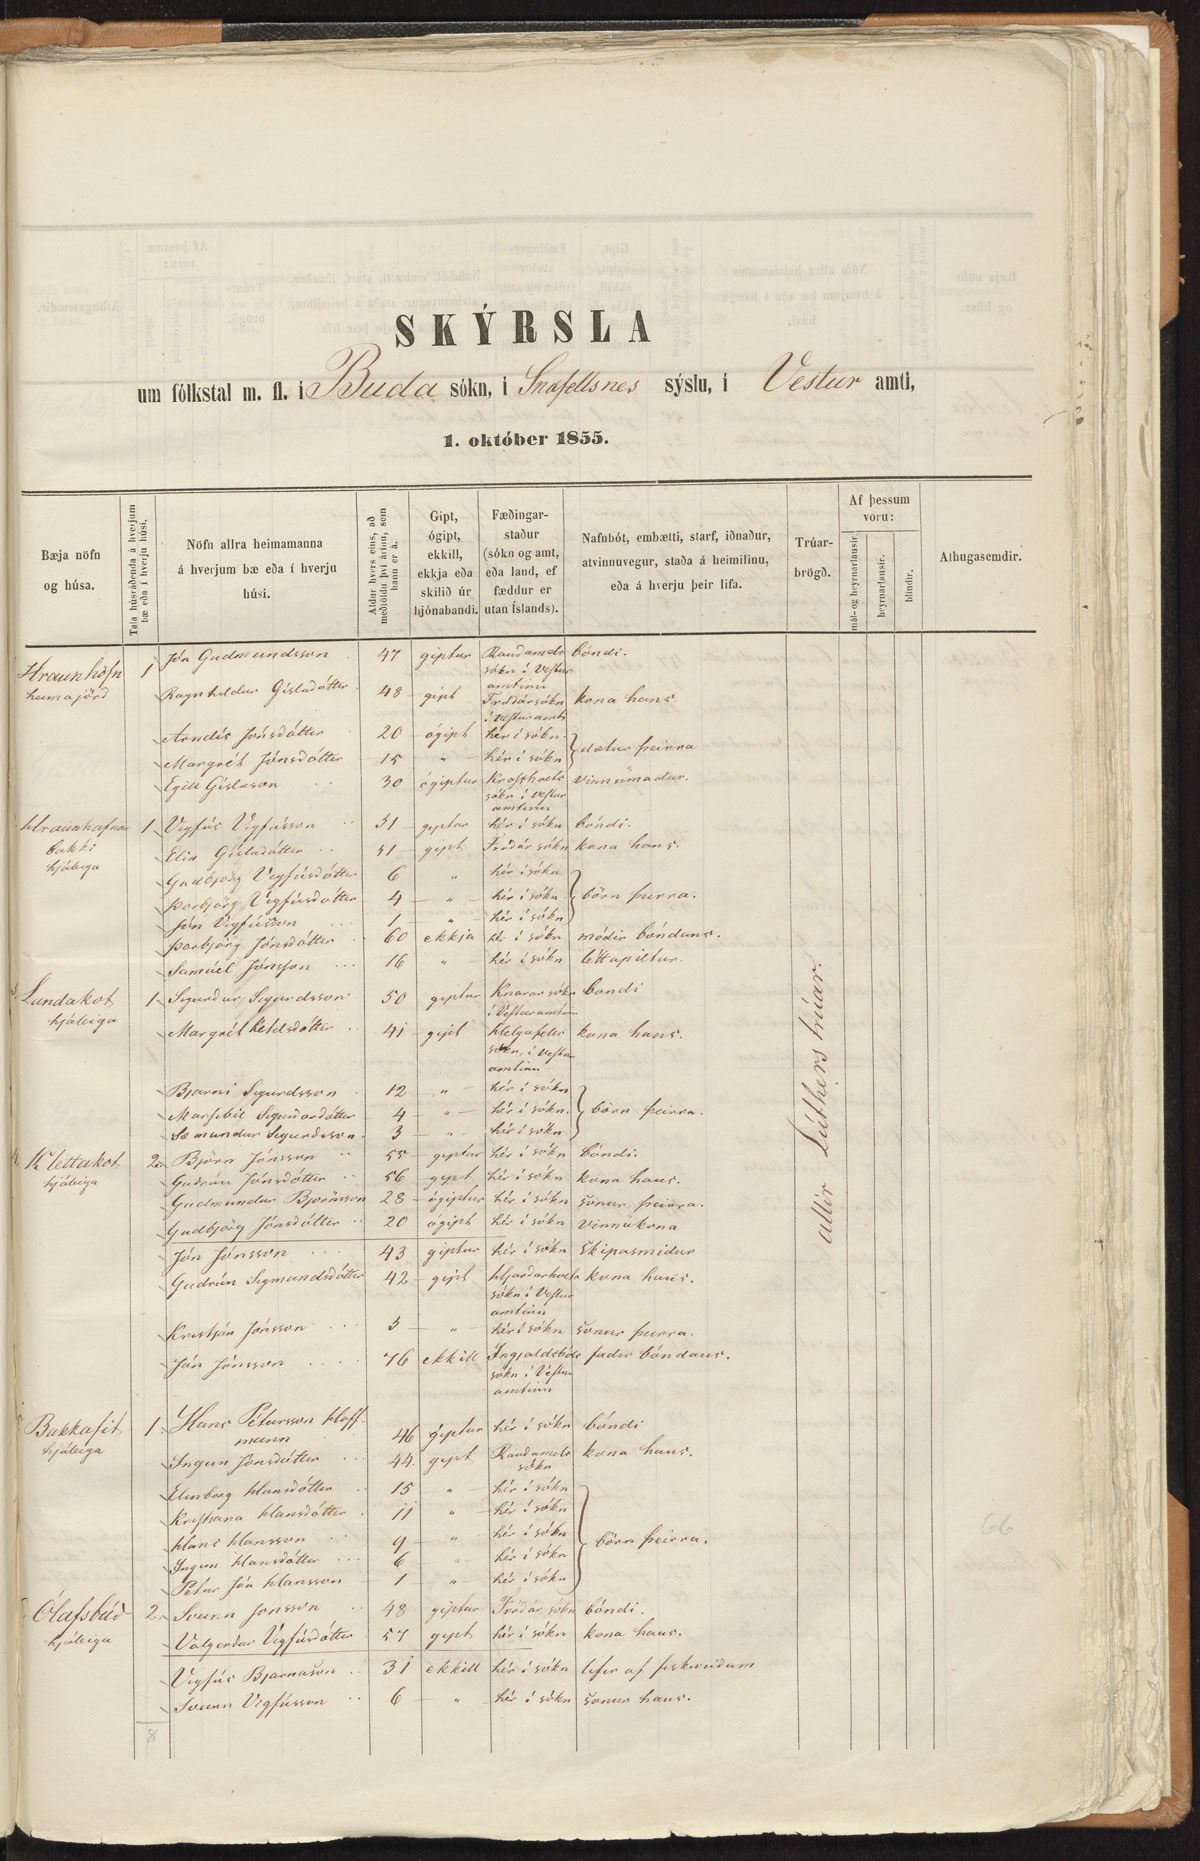 SKÝRSLA
um fólkstal m. fl. í Buda sókn, í Snæfellsnes sýslu, í Vestur amti,
1. október 1855.
Bæja nöfn og húsa.
Tala húsráðenda á hverjum bæ eða í hverju húsi.
Nöfn allra heimamanna á hverjum bæ eða í hverju húsi.
Aldur hvers eins, að meðtöldu því árinu, sem hann er á.
Gipt, ógipt, ekkill, ekkja eða skilið úr hjónabandi.
Fæðingar-staður (sókn og amt, eða land, ef fæddur er utan Íslands).
Nafnbót, embætti, starf, iðnaður, atvinnuvegur, staða á heimilinu, eða á hverju þeir lifa.
Trúar-brögð.
Af þessum voru:
mál- og heyrnarlausir.
heyrnarlausir.
blindir.
Athugasemdir.
Hraunhöfn 1 Jón Gudmundsson 47 giptur Raudamels bóndi.
heimajörd sókn í Vestur
amtinu
Ragnhildur Gísladótter 48 gipt Fródársókn kona hans
í Vesturamti
Arndís Jónsdótter 20 ógipt hér í sókn.
Margrét Jónsdótter 15 " hér í sókn dætur þeirra
Egill Gíslason 30 ógiptur Krossholts vinnumadur.
sókn í Vestur
amtinu
Hraunhafnar 1 Vigfús Vigfússon 31 giptur hér í sókn bóndi.
bakki
Elin Gísladótter 31 gipt Fródár sókn kona hans.
hjáleiga
Gudbjörg Vigfúsdótter 6 " hér í sókn
Þorbjörg Vigfúsdótter 4 " hér í sókn börn þeirra.
Jón Vigfússon 1 " hér í sókn
Þorbjörg Jónsdótter 60 ekkja hér í sókn módir bóndans.
Samúel Jónsson 16 " hér í sókn léttapiltur.
Lundakot 1 Sigurdur Sigurdsson 50 giptur Knarar sókn bóndi
hjáleiga í Vesturamtinu
Margrét Ketelsdótter 41 gipt Helgafells kona hans.
sókn, í Vestur
amtinu
Bjarni Sigurdsson 12 " hér í sókn
Marsebil Sigurdardótter 4 " hér í sókn. börn þeirra.
Sæmundur Sigurdsson 3 " hér í sókn
Klettakot 2 Björn Jónsson 55 giptur hér í sókn bóndi.
hjáleiga
Gudrún Jónsdótter 56 gipt hér í sókn kona hans.
Gudmundur Björnsson 28 ógiptur hér í sókn sonur þeirra.
Gudbjörg Jónsdótter 20 ógipt hér í sókn vinnukona
Jón Jónsson 43 giptur hér í sókn skipasmidur
Gudrún Sigmundsdótter 42 gipt Hjardarholts kona hans.
sókn í Vestur
amtinu
Kristján Jónsson 3 " hér í sókn sonur þeirra.
Jón Jónsson 76 ekkill Ingjaldshóls fadir bóndans.
sókn í Vestur
amtinu
Bakkafit 1 Hans Pétursson Hoff-
mann 46 giptur hér í sókn bóndi
hjáleiga
Ingun Jónsdótter 44 gipt Raudamels kona hans.
sókn
Elinborg Hansdótter 15 " hér í sókn
Kristjana Hansdótter 11 " hér í sókn
Hans Hansson 9 " hér í sókn börn þeirra.
Ingun Hansdótter 6 " hér í sókn
Pétur Jón Hansson 1 " hér í sókn
Ólafsbúd 2 Sveinn Jonsson 48 giptur Fródár sókn bóndi.
hjáleiga
Valgerdur Vigfúsdótter 57 gipt hér í sókn kona hans.
Vigfús Bjarnason 31 ekkill hér í sókn lifir af fiskveidum
Sveinn Vigfússon 6 " hér í sókn sonur hans.
8
allir Lúthers trúar.
66